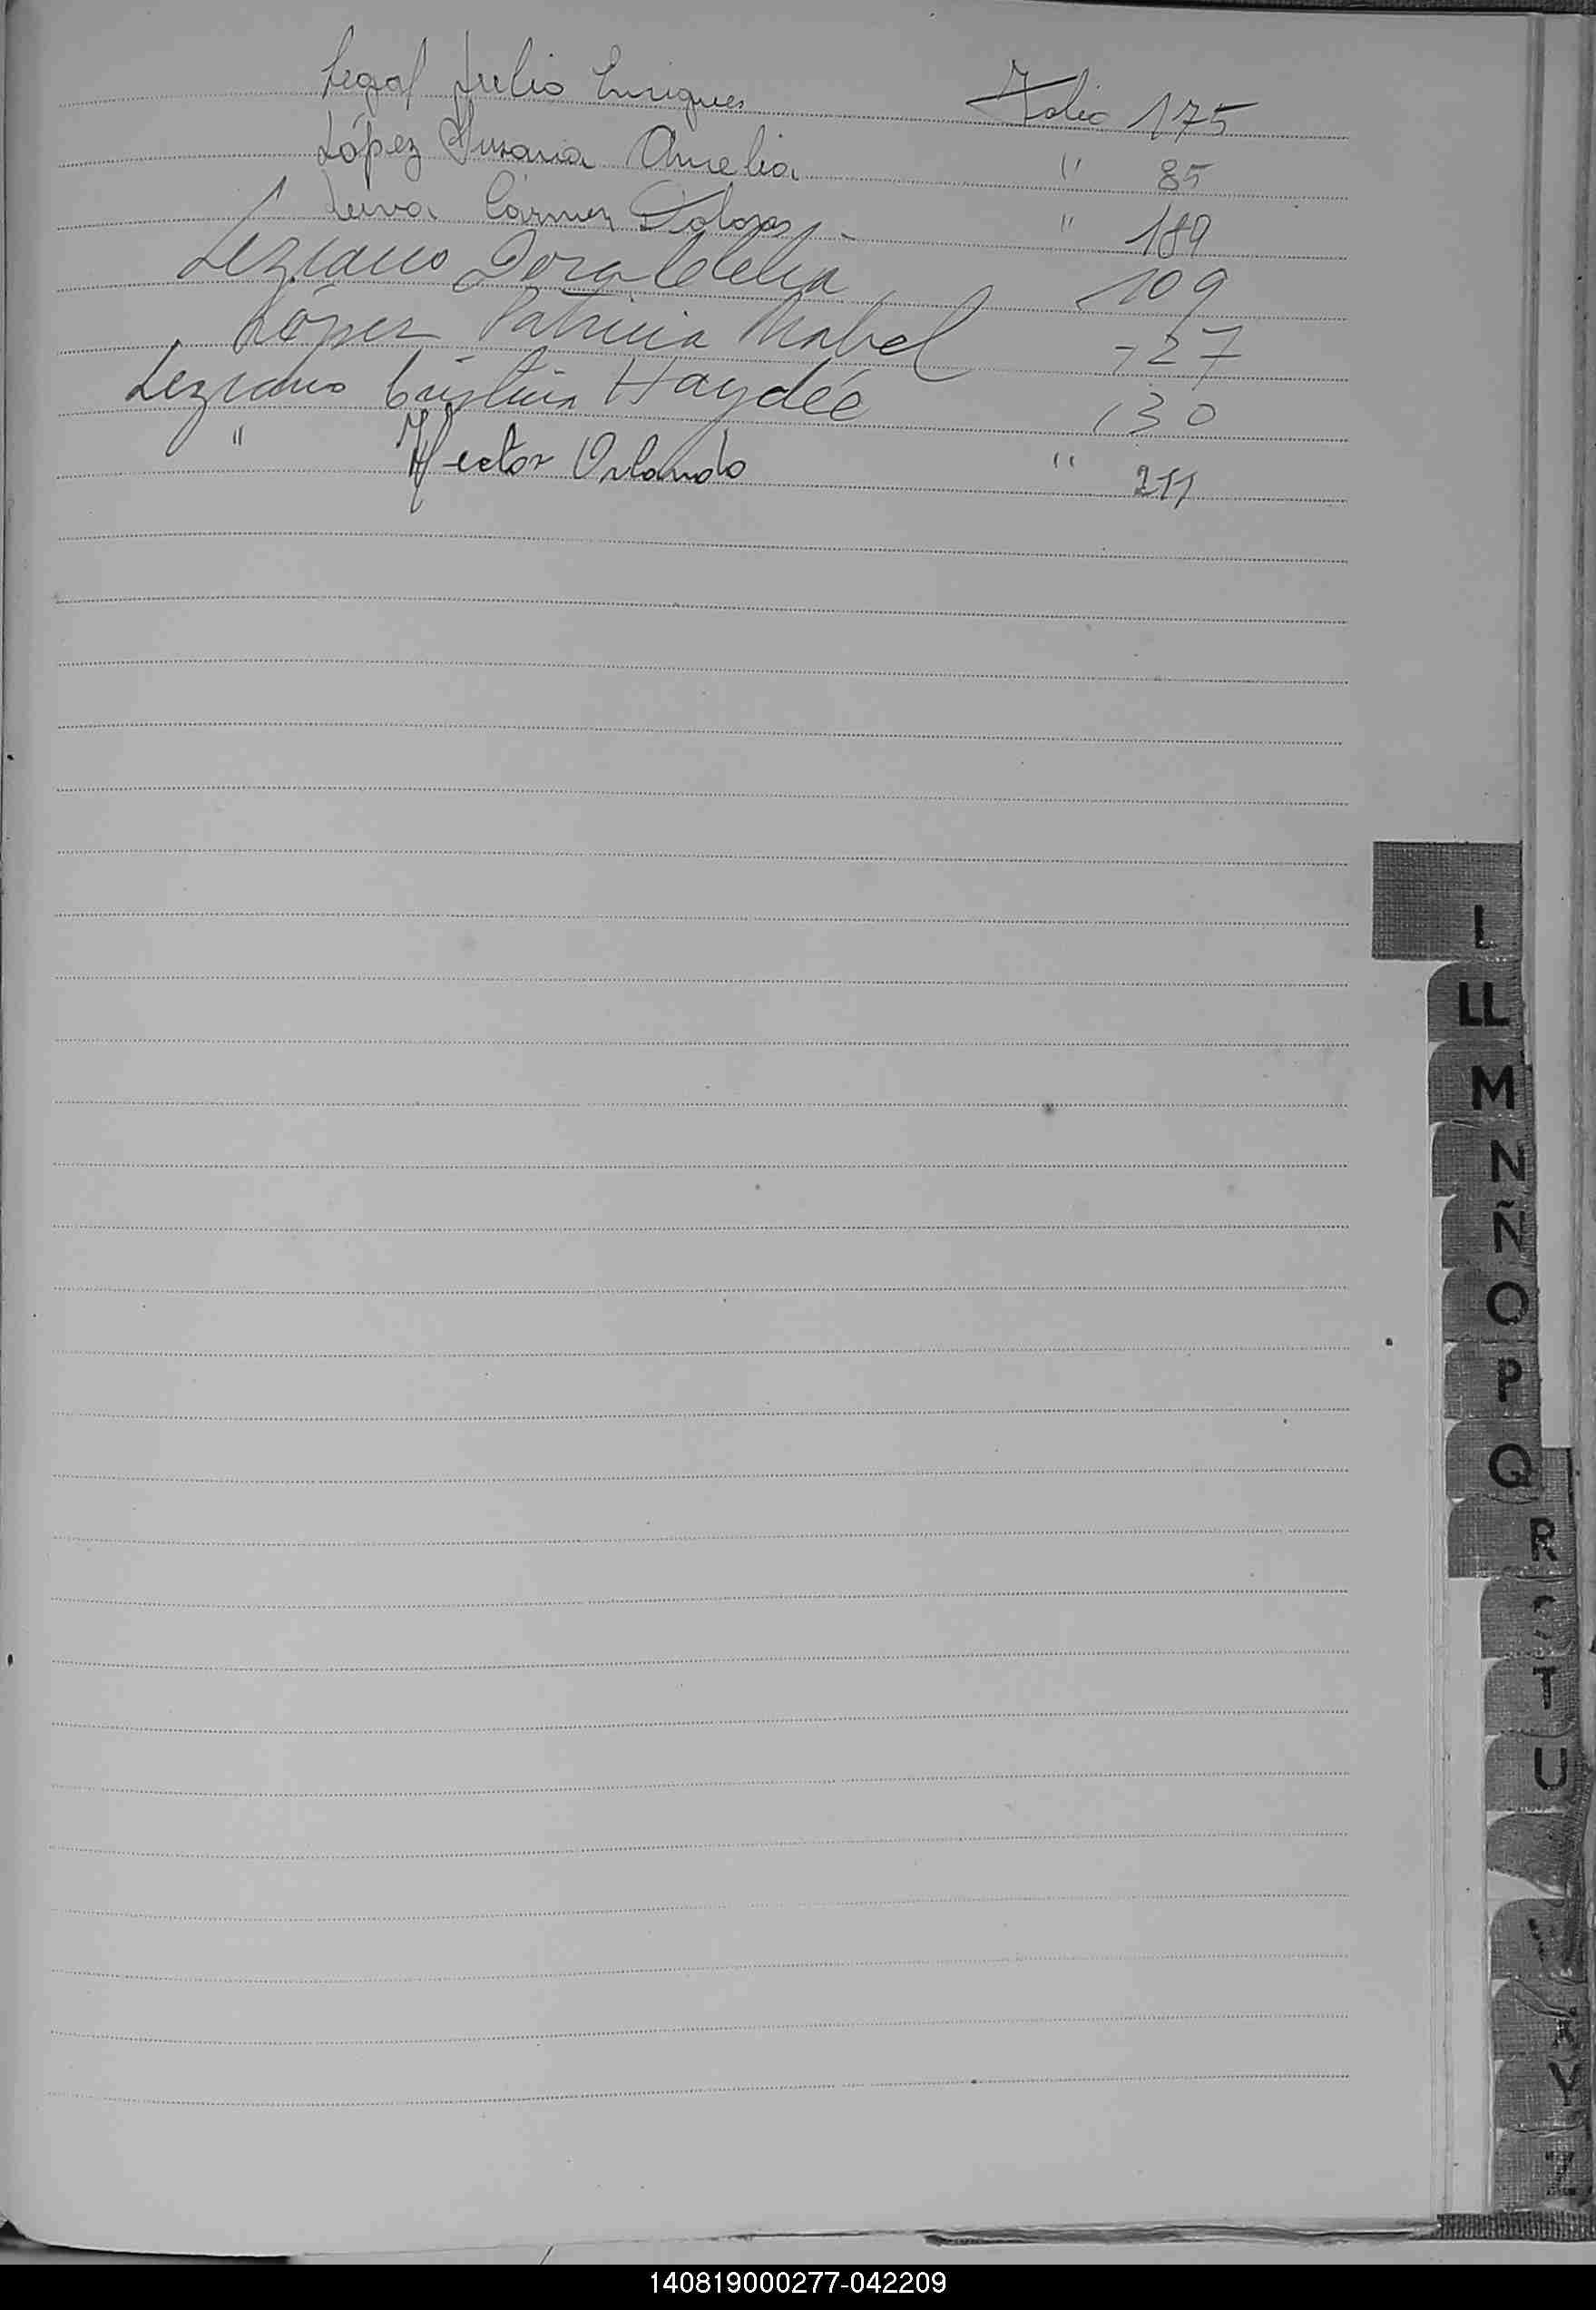 Legal Julio Enriques Folio 175
López Susana Amelia " 85
Leiva Cármen Dolores - " 189
Lezcano Dora Delia 109
López Patricia Mabel 127
Lezcano Cristina Haydée 130
" Hector Orlando " 211
L
LL
M
N
Ñ
O
P
Q
R
S
T
U
X
Y
Z
140819000277-042209